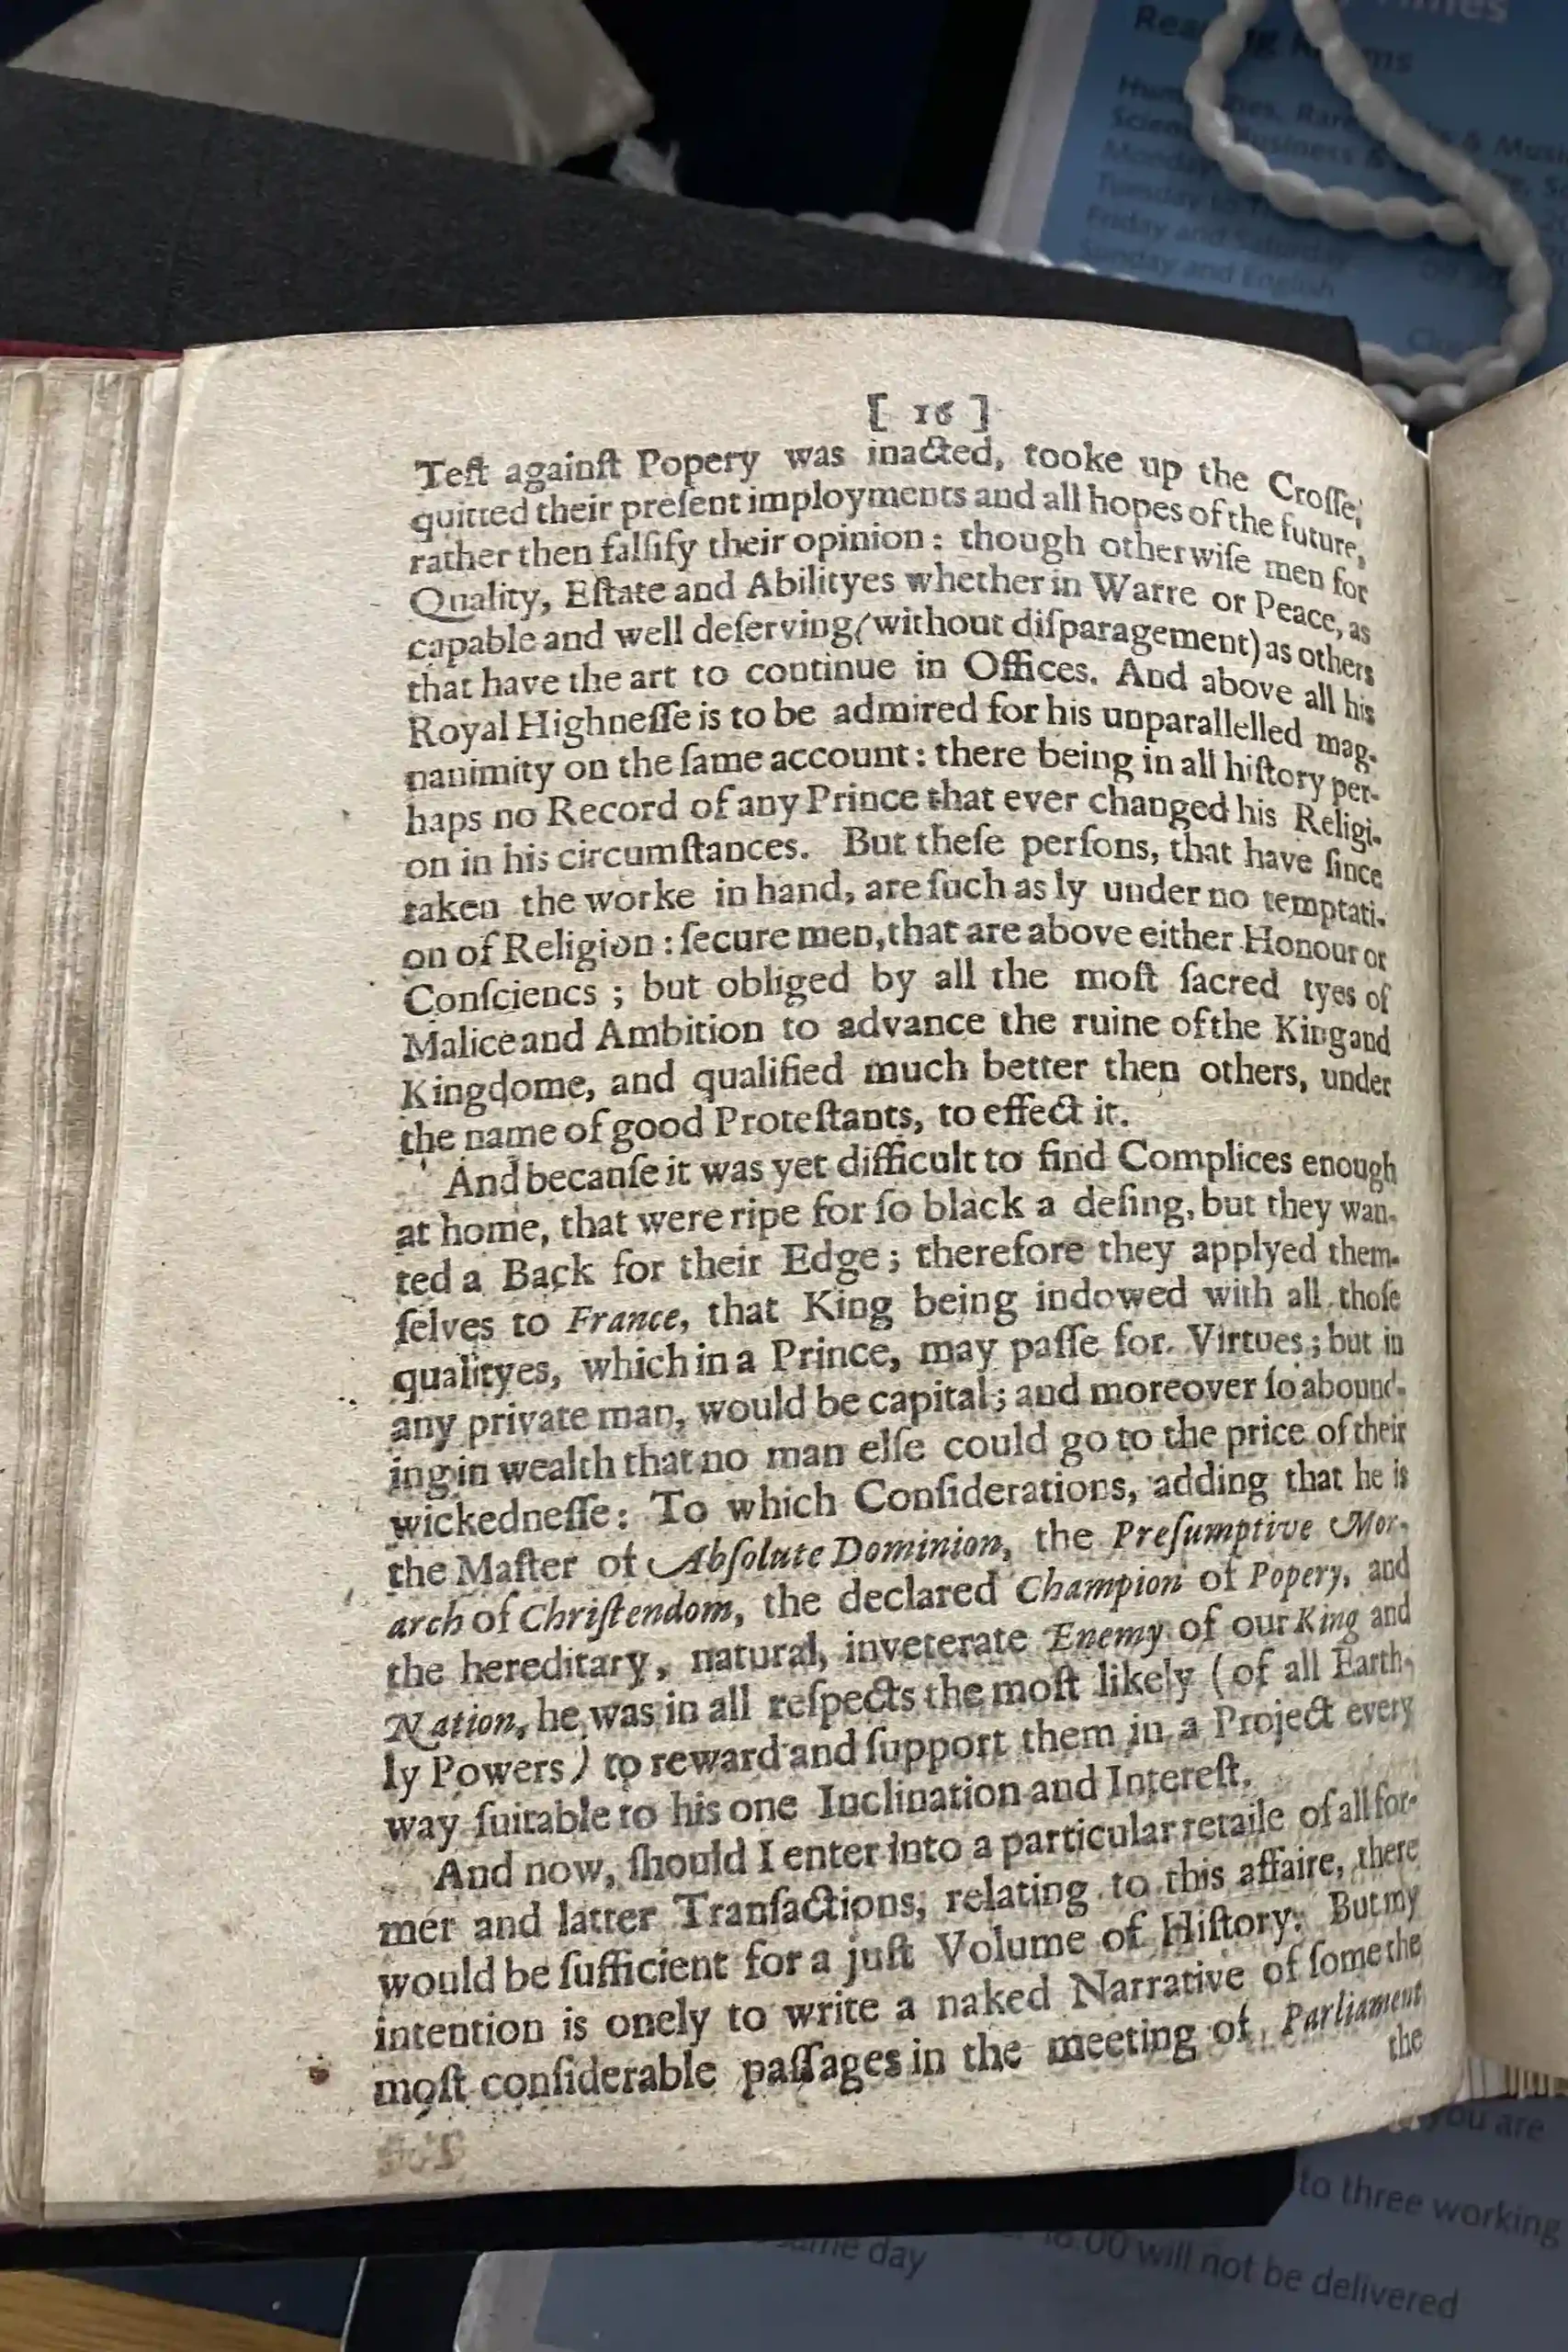 Times
Humanities, Rare & Music
Science, Business &
Monday
Tuesday to
Friday and Saturday
Sunday and English
[ 16 ]
Teſt againſt Popery was inacted, tooke up the Croſſe,
quitted their preſent imployments and all hopes of the future,
rather then falſify their opinion : though otherwiſe men for
Quality, Eſtate and Abilityes whether in Warre or Peace, as
capable and well deſerving (without diſparagement) as others
that have the art to continue in Offices. And above all his
Royal Highneſſe is to be admired for his unparallelled mag-
nanimity on the ſame account : there being in all hiſtory per-
haps no Record of any Prince that ever changed his Religi-
on in his circumſtances. But theſe perſons, that have ſince
taken the worke in hand, are ſuch as ly under no temptati-
on of Religion : ſecure men, that are above either Honour or
Conſciencs ; but obliged by all the moſt ſacred tyes of
Malice and Ambition to advance the ruine of the King and
Kingdome, and qualified much better then others, under
the name of good Proteſtants, to effect it.
And becanſe it was yet difficult to find Complices enough
at home, that were ripe for ſo black a deſing, but they wan-
ted a Back for their Edge ; therefore they applyed them-
ſelves to France, that King being indowed with all thoſe
qualityes, which in a Prince, may paſſe for Virtues ; but in
any private man, would be capital ; and moreover ſo abound-
ing in wealth that no man elſe could go to the price of their
wickedneſſe : To which Conſiderations, adding that he is
the Maſter of Abſolute Dominion, the Preſumptive Mor-
arch of Chriſtendom, the declared Champion of Popery, and
the hereditary, natural, inveterate Enemy of our King and
Nation, he was in all reſpects the moſt likely ( of all Earth-
ly Powers ) to reward and ſupport them in a Project every
way ſuitable to his one Inclination and Intereſt.
And now, ſhould I enter into a particular retaile of all for-
mer and latter Tranſactions, relating to this affaire, there
would be ſufficient for a juſt Volume of Hiſtory. But my
intention is onely to write a naked Narrative of ſome the
moſt conſiderable paſſages in the meeting of Parliament
the
you are
to three working
18.00 will not be delivered
same day